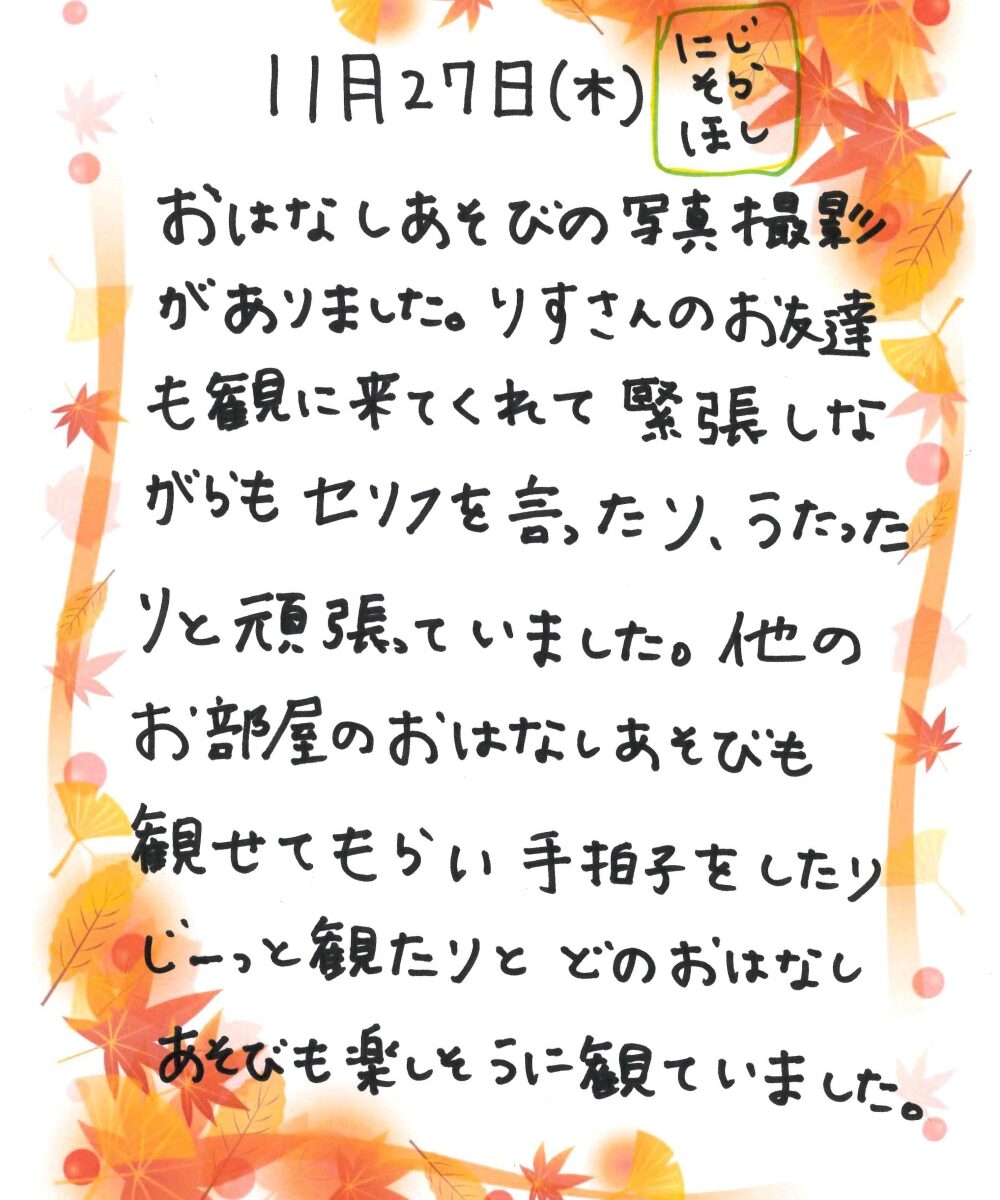 11月27日(木)
にじ
そら
ほし
おはなしあそびの写真撮影
がありました。りすさんのお友達
も観に来てくれて緊張しな
がらもセリフを言ったり、うたった
りと頑張っていました。他の
お部屋のおはなしあそびも
観せてもらい手拍子をしたり
じーっと観たりと どのおはなし
あそびも楽しそうに観ていました。